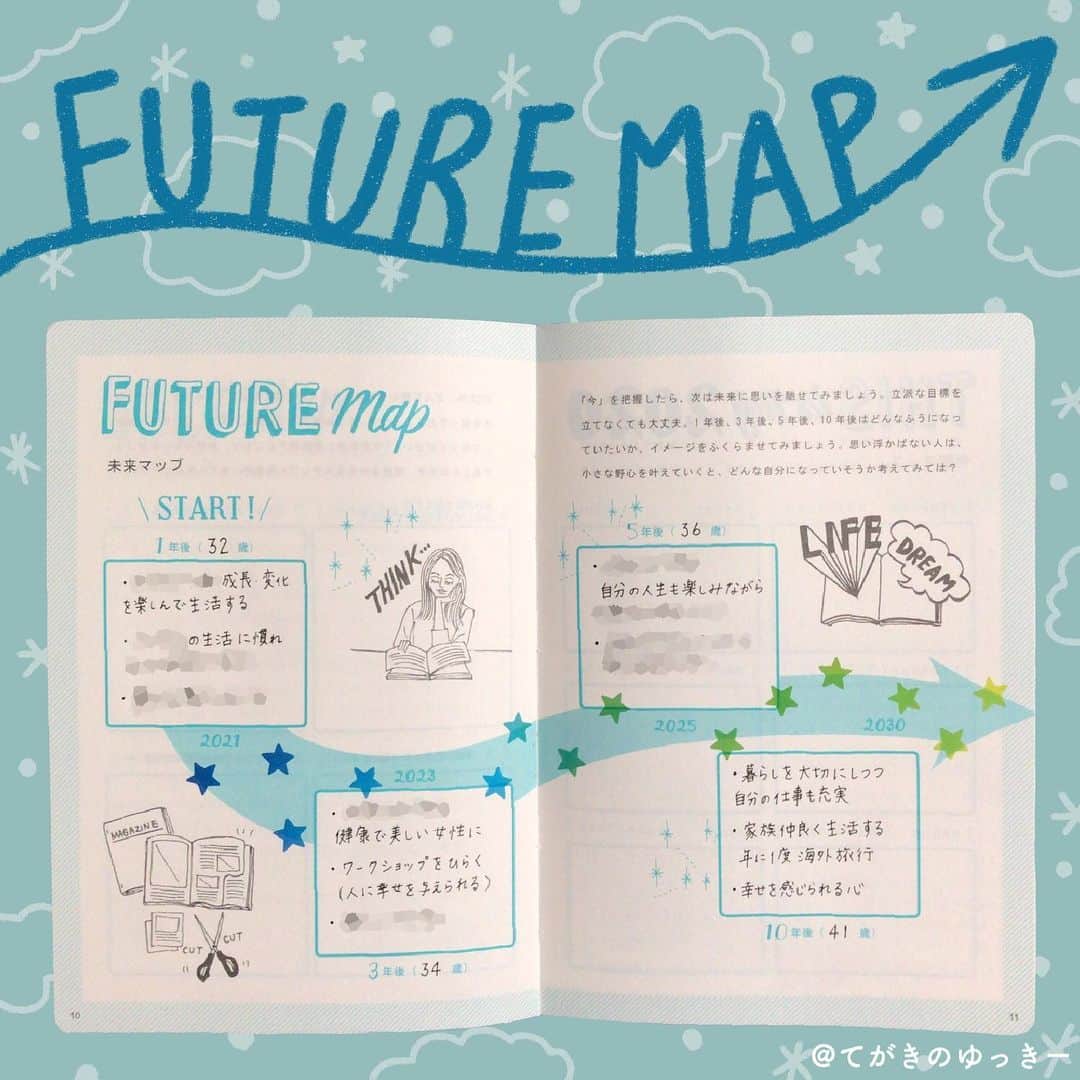 FUTURE MAP
FUTURE map
未来マップ
START!
1年後(32歳)
成長・変化
を楽しんで生活する
の生活に慣れ
2021
THINK...
MAGAZINE
CUT
CUT
2023
健康で美しい女性に
・ワークショップをひらく
(人に幸せを与えられる)
3年後(34歳)
10
「今」を把握したら、次は未来に思いを馳せてみましょう。立派な目標を
立てなくても大丈夫。1年後、3年後、5年後、10年後はどんなふうになっ
ていたいか、イメージをふくらませてみましょう。思い浮かばない人は、
小さな野心を叶えていくと、どんな自分になっていそうか考えてみては?
5年後(36歳)
自分の人生も楽しみながら
LIFE
DREAM
2025
2030
・暮らしを大切にしつつ
自分の仕事も充実
・家族仲良く生活する
年に1度海外旅行
・幸せを感じられる心
10年後(41歳)
11
@てがきのゆっきー